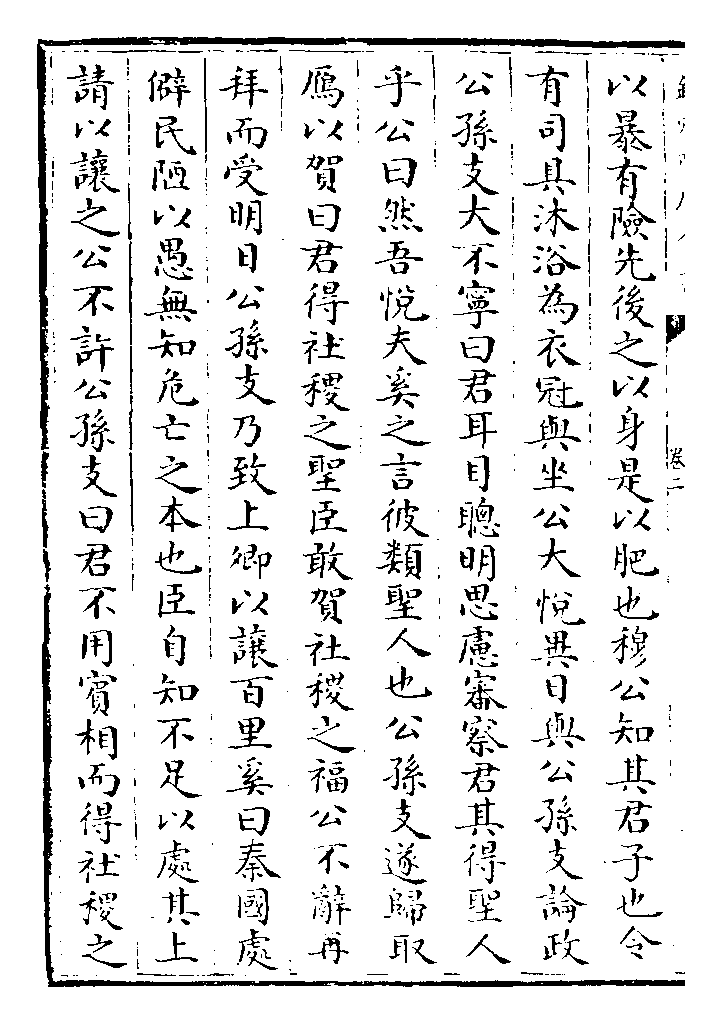 卷二
以暴有險先後之以身是以肥也穆公知其君子也令
有司具沐浴為衣冠與坐公大悅異日與公孫支論政
公孫支大不寧曰君耳目聰明思慮審察君其得聖人
乎公曰然吾悅夫奚之言彼類聖人也公孫支遂歸取
鴈以賀曰君得社稷之聖臣敢賀社稷之福公不辭再
拜而受明日公孫支乃致上卿以讓百里奚曰秦國處
僻民陋以愚無知危亡之本也臣自知不足以處其上
請以讓之公不許公孫支曰君不用賓相而得社稷之